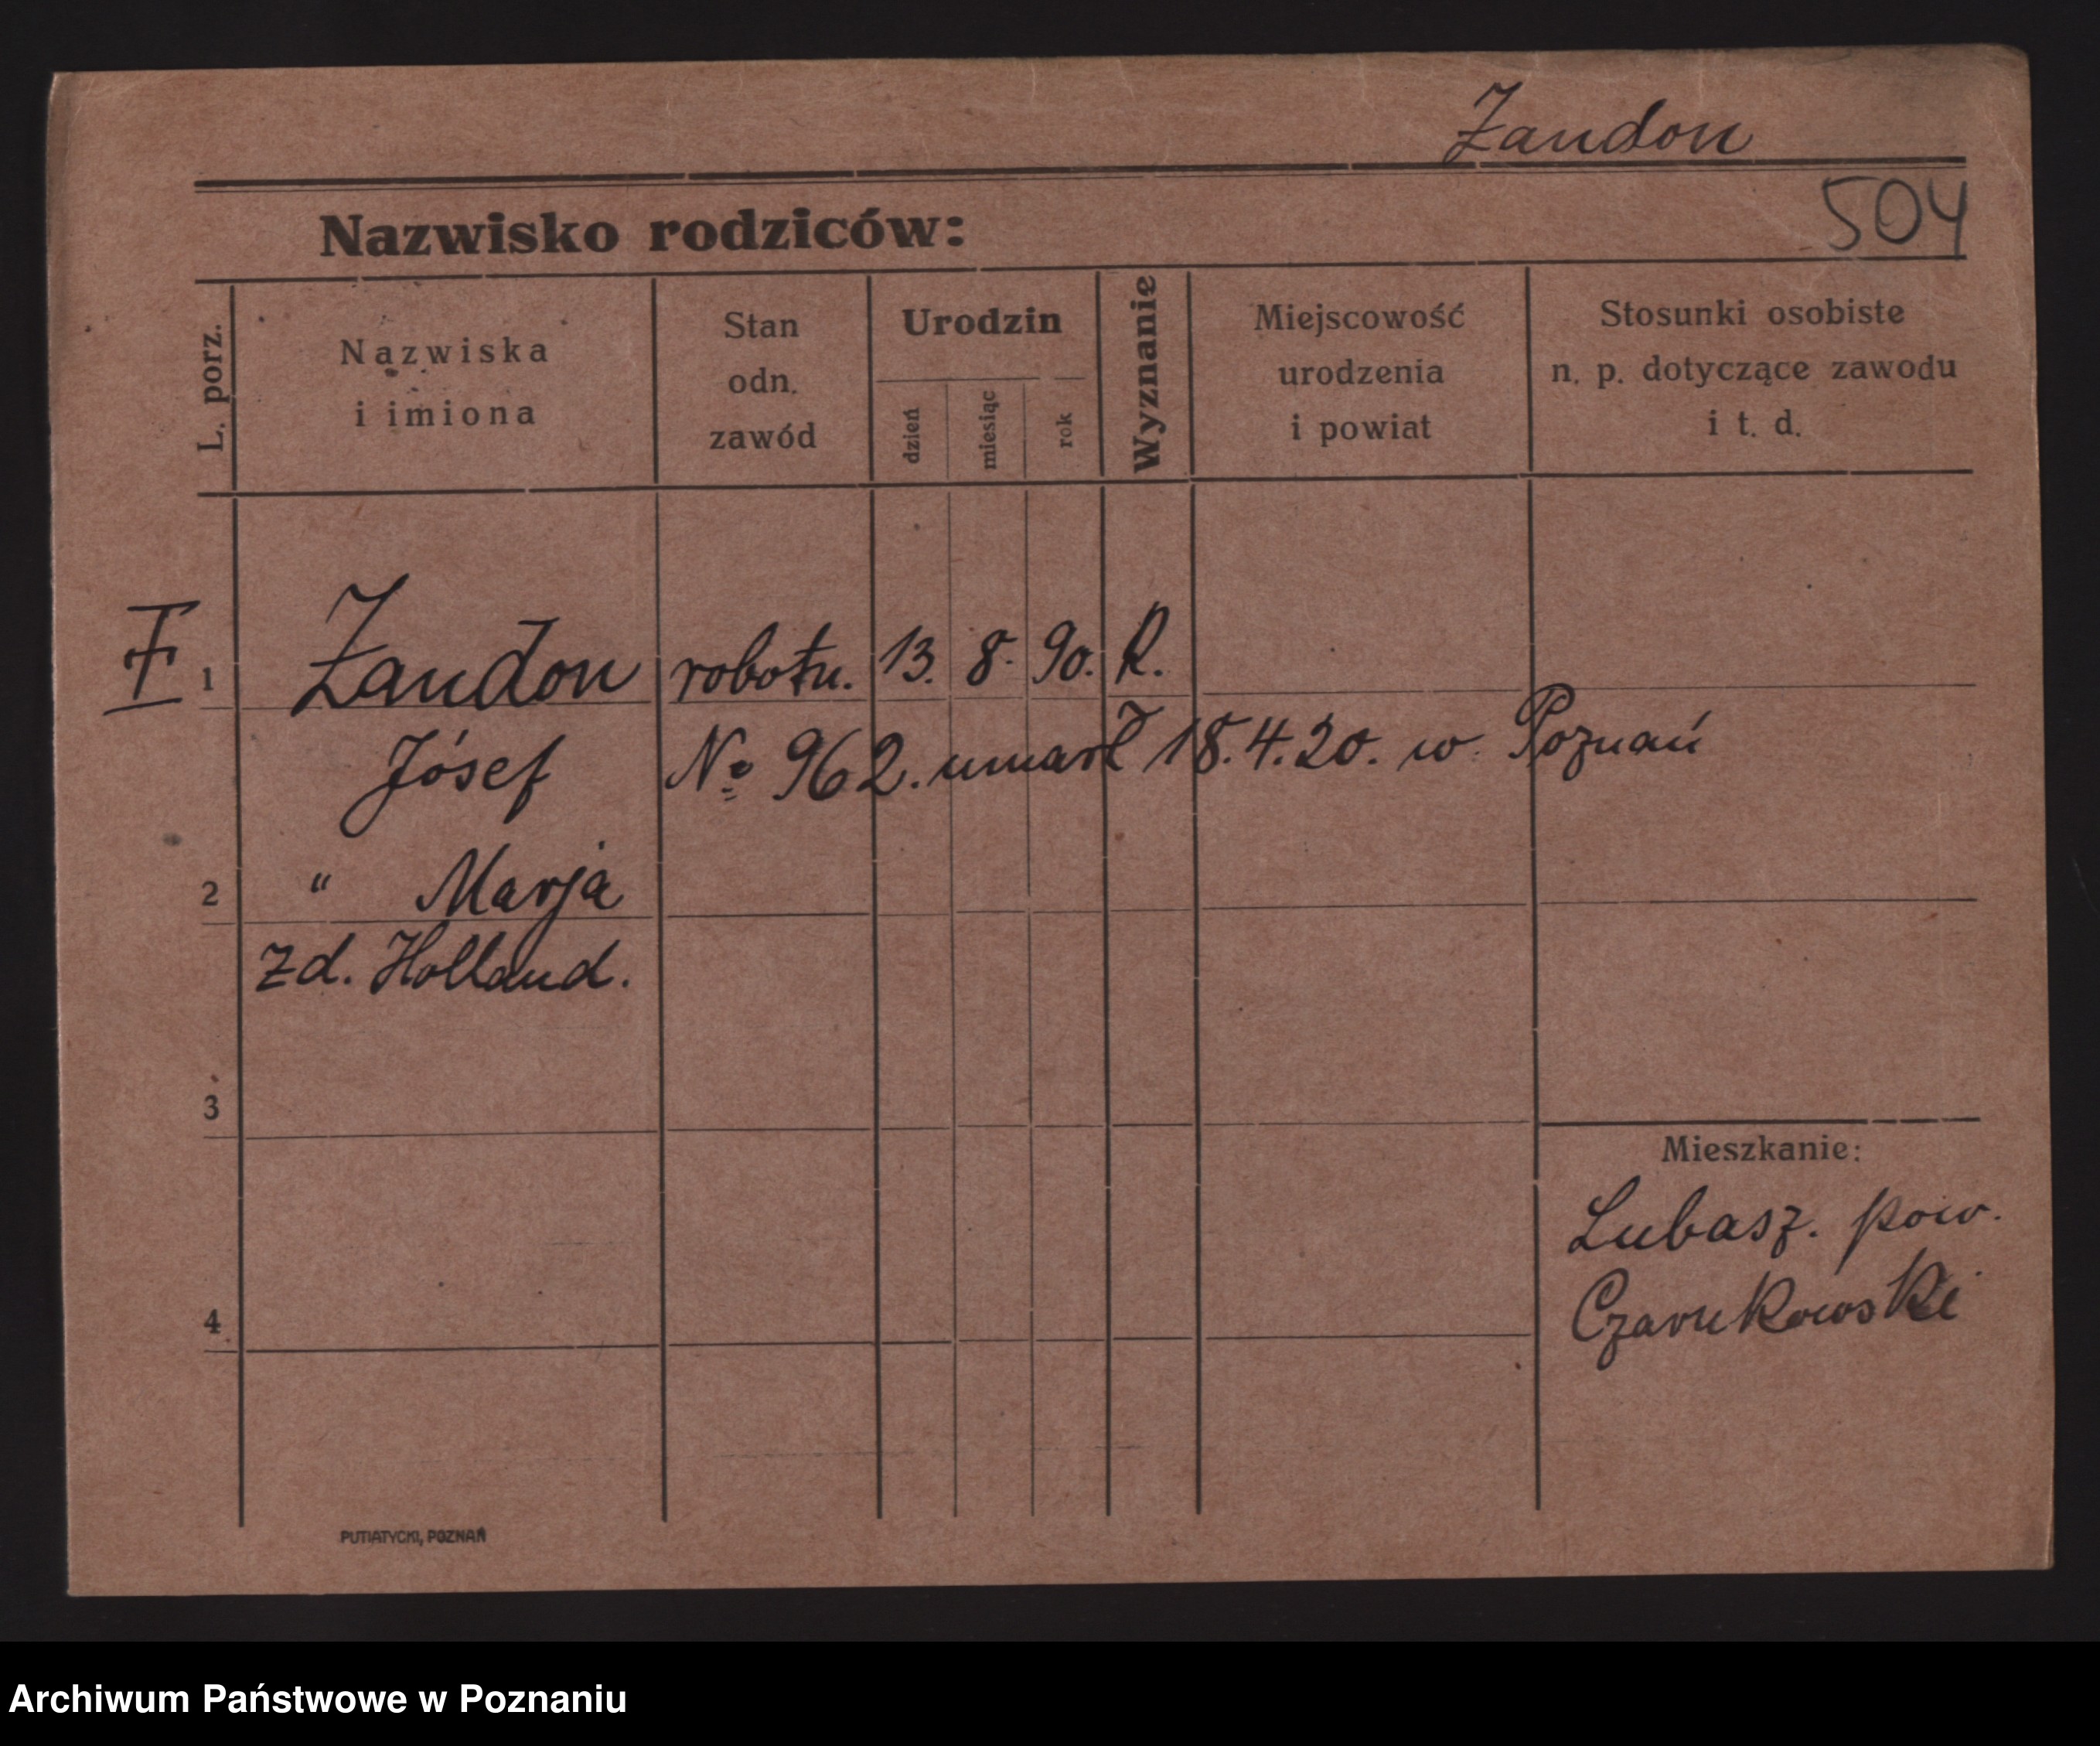 Żandon
504
Nazwisko rodziców:
L. porz.
Nazwiska
i imiona
Stan
odn.
zawód
Urodzin
dzień
miesiąc
rok
Wyznanie
Miejscowość
urodzenia
i powiat
Stosunki osobiste
n. p. dotyczące zawodu
i t. d.
1 Żandon robotn. 13. 8. 90. R.
Jósef № 962. umarł 18.4.20. w Poznań
2 " Marja
zd. Holland.
3
Mieszkanie:
Lubasz. pow.
Czarnkowski
4
PUTIATYCKI, POZNAŃ
Archiwum Państwowe w Poznaniu